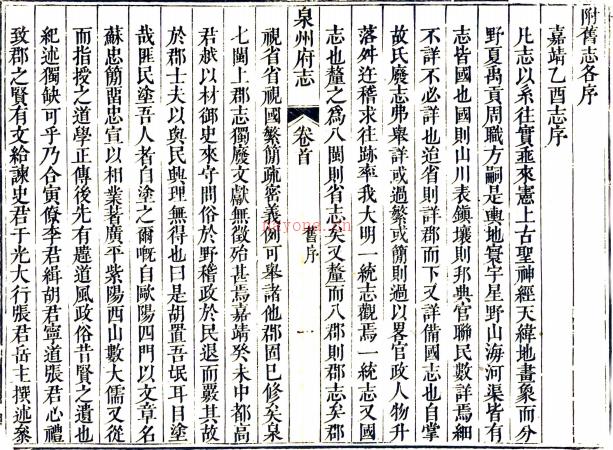 附舊志各序
嘉靖乙酉志序
凡志以系往實垂來憲上古聖神經天緯地畫象而分
野夏禹貢周職方嗣是輿地寰宇星野山海河渠皆有
志皆國也國則山川表鎮壤則邦典官聯民數詳焉細
不詳不必詳也迨省則詳郡而下又詳備國志也自掌
故氏廢志弗舉詳或過繁或簡則過以畧官政人物升
落舛迕稽求往跡率我大明一統志觀焉一統志又國
志也釐之為八閩則省志矣又釐而八郡則郡志矣郡
泉州府志
卷首
舊序
一
視省省視國繁簡疏密義例可舉諸他郡固已修矣泉
七閩上郡志獨廢文獻無徵殆甚焉嘉靖癸未中都高
君越以材御史來守問俗於野稽政於民退而覈其故
於郡士夫以與民興理無得也曰是胡置吾氓耳目塗
哉匪民塗吾人者自塗之爾嘅自歐陽四門以文章名
蘇忠簡留忠宣以相業著廣平紫陽西山數大儒又從
而指授之道學正傳後先有趯道風政俗昔賢之遺也
紀述獨缺可乎乃合寅僚李君緝胡君寧道張君心禮
致郡之賢有文給諫史君于光大行張君岳主撰述叅
nayond.cn